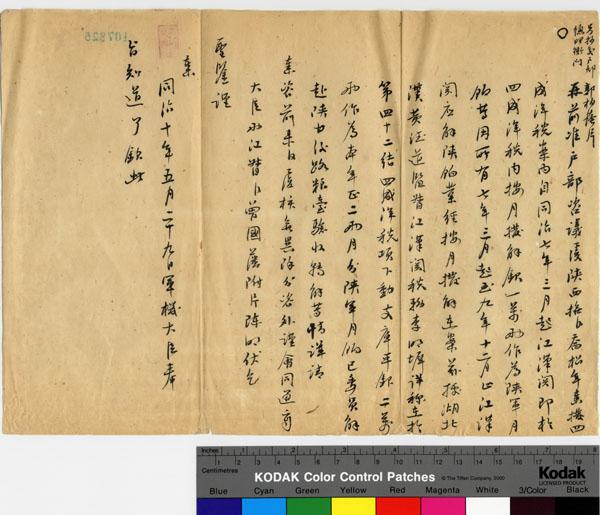 交戶部
總理衙門
郭柏蔭片
再前准戶部咨議覆陝西撫臣喬松年奏撥四
成洋稅案內自同治七年三月起江漢關即於
四成洋稅內按月撥解銀一萬兩作為陝軍月
餉等因所有七年三月起至九年十二月止江漢
關應解陝餉業經按月撥解在案茲據湖北
漢黃德道監督江漢關稅務李明墀詳稱在於
第四十二結四成洋稅項下動支庫平銀二萬
兩作為本年正二兩月分陝軍月餉已委員解
赴陝甘後路糧臺驗收轉解等情詳請
奏咨前來臣覆核無異除分咨外謹會同通商
大臣兩江督臣曾國藩附片陳明伏乞
聖鑒謹
奏
同治十年五月二十九日軍機大臣奉
旨知道了欽此
107826
Inches 1 2 3 4 5 6 7 8
Centimetres 1 2 3 4 5 6 7 8 9 10 11 12 13 14 15 16 17 18 19
KODAK Color Control Patches
© The Tiffen Company, 2000
Kodak
LICENSED PRODUCT
Blue Cyan Green Yellow Red Magenta White 3/Color Black